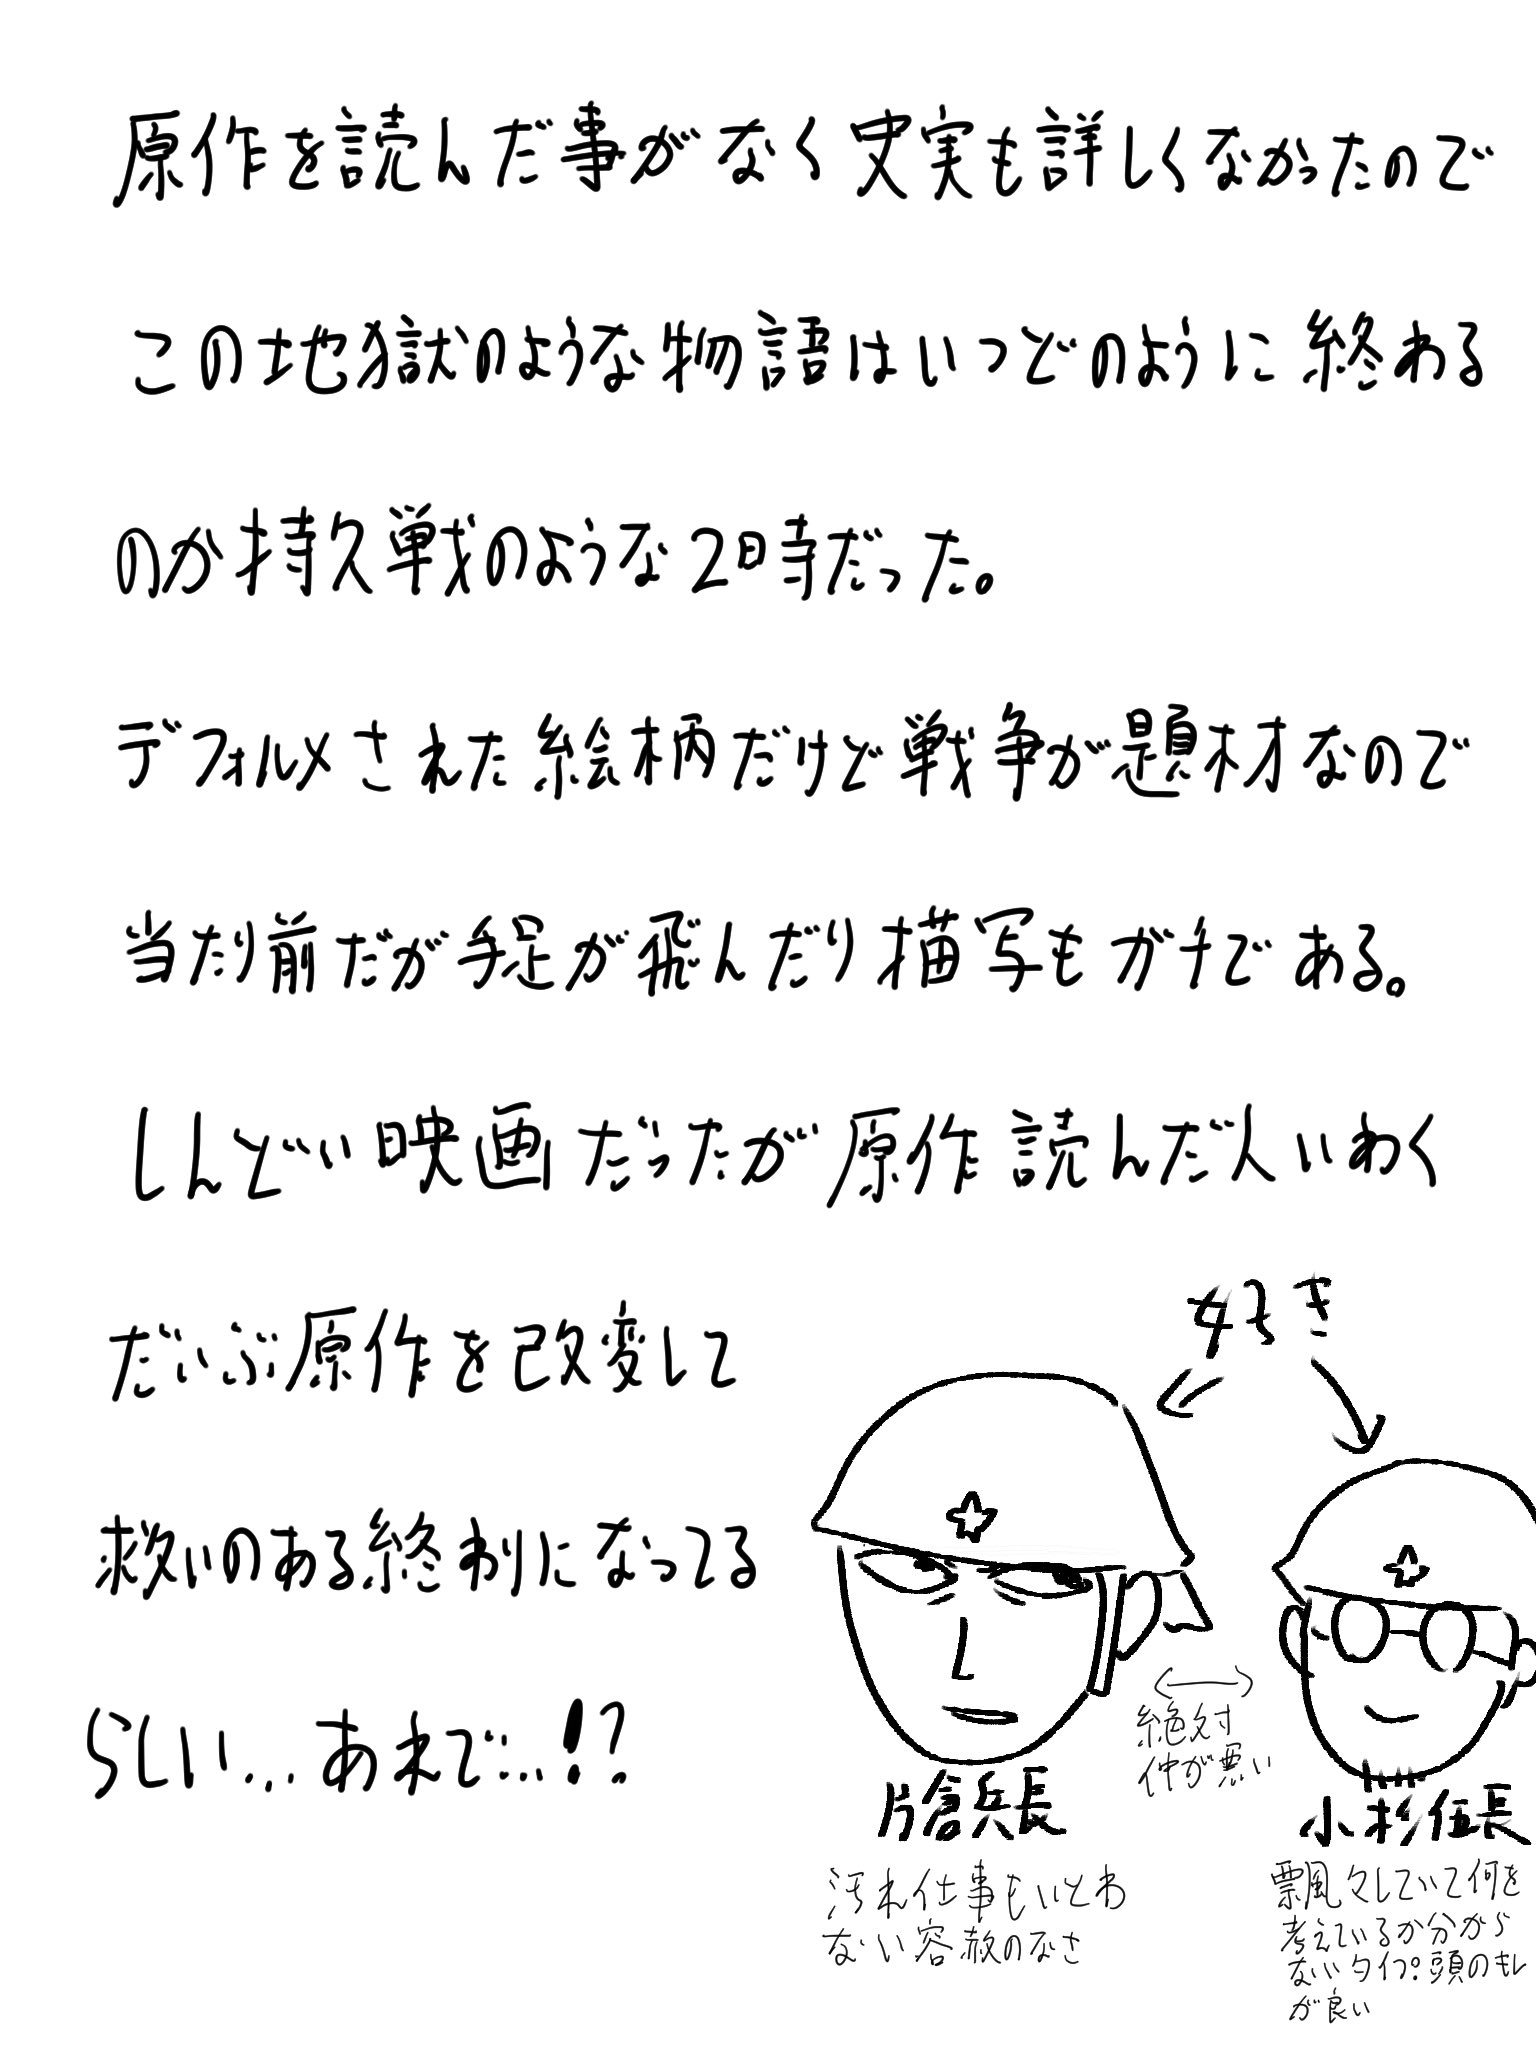 原作を読んだ事がなく史実も詳しくなかったので
この地獄のような物語はいつどのように終わる
のか持久戦のような2時だった。
デフォルメされた絵柄だけど戦争が題材なので
当たり前だが手足が飛んだり描写もガチである。
しんどい映画だったが原作読んだ人いわく
だいぶ原作を改変して
救いのある終わりになってる
らしい...あれで...!?
好き
絶対
仲が悪い
片倉兵長
汚れ仕事もいとわ
ない容赦のなさ
小杉伍長
飄々していて何を
考えているか分から
ないタイプ。頭のキレ
が良い